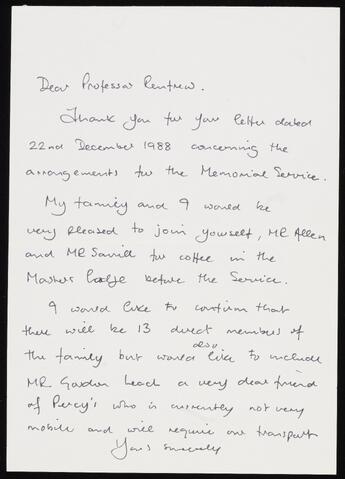 Dear Professor Renfrew.
Thank you for your letter dated
22nd December 1988 concerning the
arrangements for the Memorial Service.
My family and I would be
very pleased to join yourself, MR Allen
and MR Savill for coffee in the
Masters Lodge before the Service.
I would like to confirm that
there will be 13 direct members of
the family but would also like to include
MR Gordon Leach a very dear friend
of Percy's who is currently not very
mobile and will require our transport
Yours sincerely